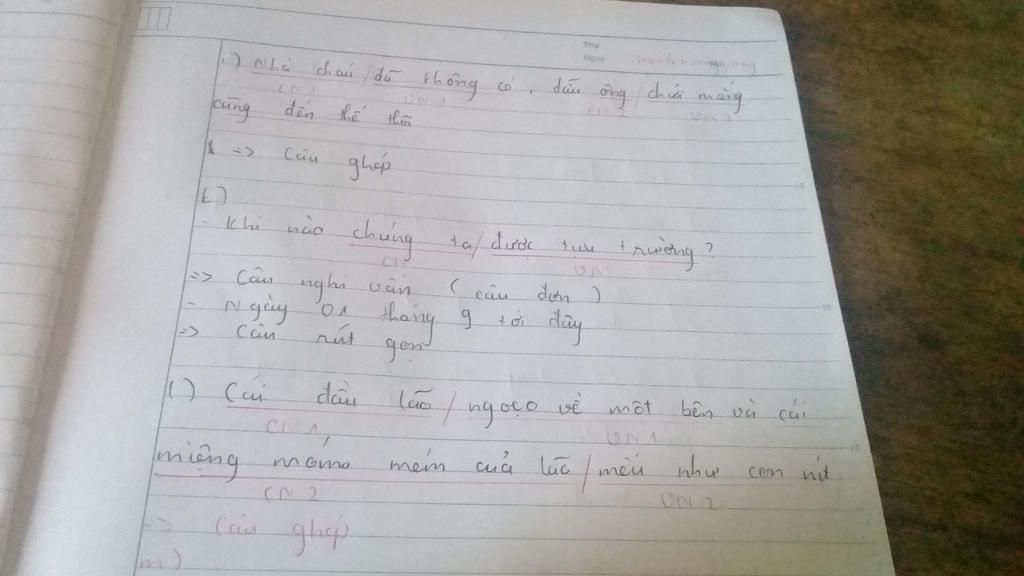 Thứ
Ngày
i) Nhà cháu / đã không có, dẫu ông / chửi mắng
CN1 VN1 CN2 VN2
cũng đến thế thôi
=> Câu ghép
k)
- Khi nào chúng ta / được tựu trường?
CN VN
=> Câu nghi vấn (câu đơn)
- Ngày 01 tháng 9 tới đây
=> Câu rút gọn
l) Cái đầu lão / ngoẹo về một bên và cái
CN1 VN1
miệng móm mém của lão / mếu như con nít
CN2 VN2
=> Câu ghép
m)